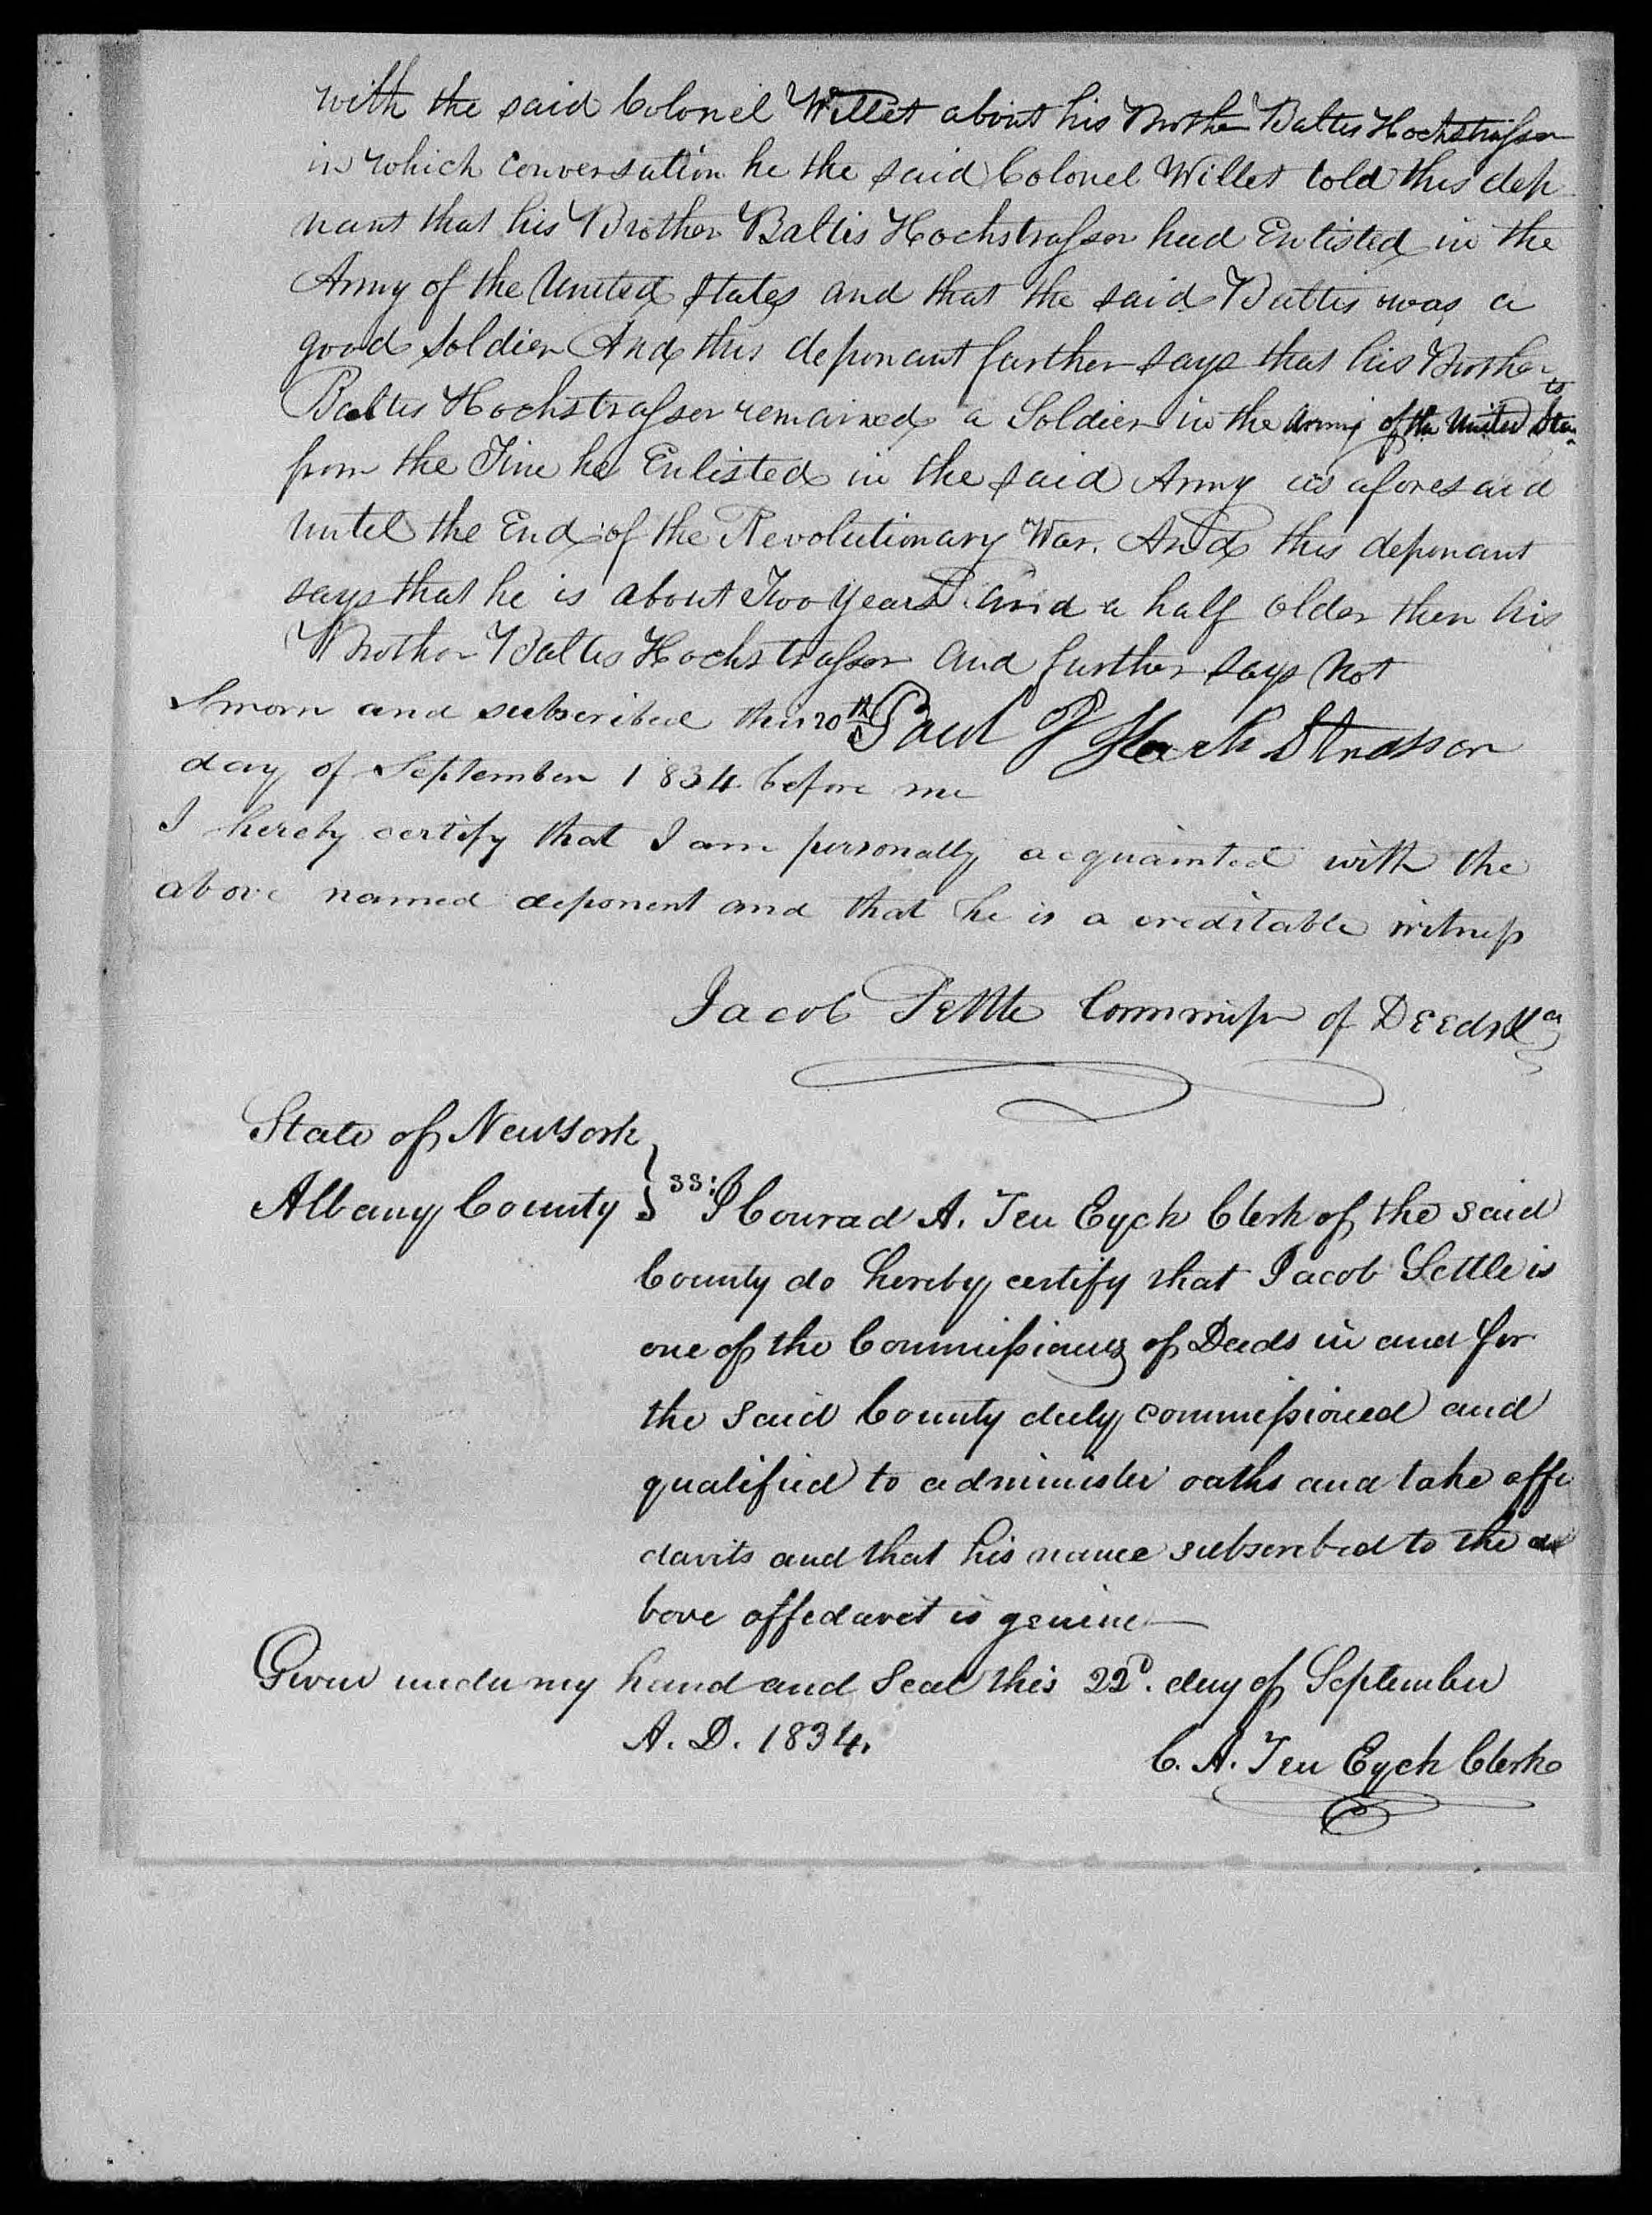 with the said Colonel Willet about his Brother Baltis Hochstrasser
in which conversation he the said Colonel Willet told this dep
nant that his Brother Baltis Hochstrasser had Enlisted in the
Army of the United States and that the said Baltis was a
good soldier And this deponant further says that his Brother
Baltis Hochstrasser remained a Soldier in the Army of the United States
from the Time he Enlisted in the said Army as aforesaid
until the End of the Revolutionary War. And this deponant
says that he is about Two years and a half older then his
Brother Baltis Hochstrasser and further says not
Sworn and subscribed this 20th Paul P Hochstrasser
day of September 1834 before me
I hereby certify that I am personally acquainted with the
above named deponent and that he is a creditable witness
Jacob Settle Commissr of Deeds &c
State of New York
Albany County } ss: I Conrad A. Ten Eyck Clerk of the said
County do hereby certify that Jacob Settle is
one of the Commissioners of Deeds in and for
the said County duly commissioned and
qualified to administer oaths and take affi
davits and that his name subscribed to the a
bove affedavit is genuine
Given under my hand and Seal this 22d. day of September
A. D. 1834.
C. A. Ten Eyck Clerk